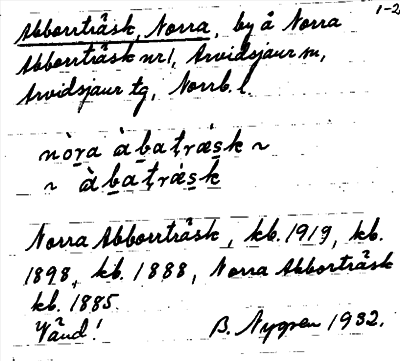 1-2
Abborrträsk, Norra, by å Norra
Abborrträsk nr 1, Arvidsjaur sn,
Arvidsjaur tg, Norrb. l.
nòra àbaträ́sk ~
~ àbaträ́sk
Norra Abborrträsk, kb. 1919, kb.
1898, kb. 1888, Norra Abborträsk
kb. 1885.
Vänd!
B. Nygren 1932.